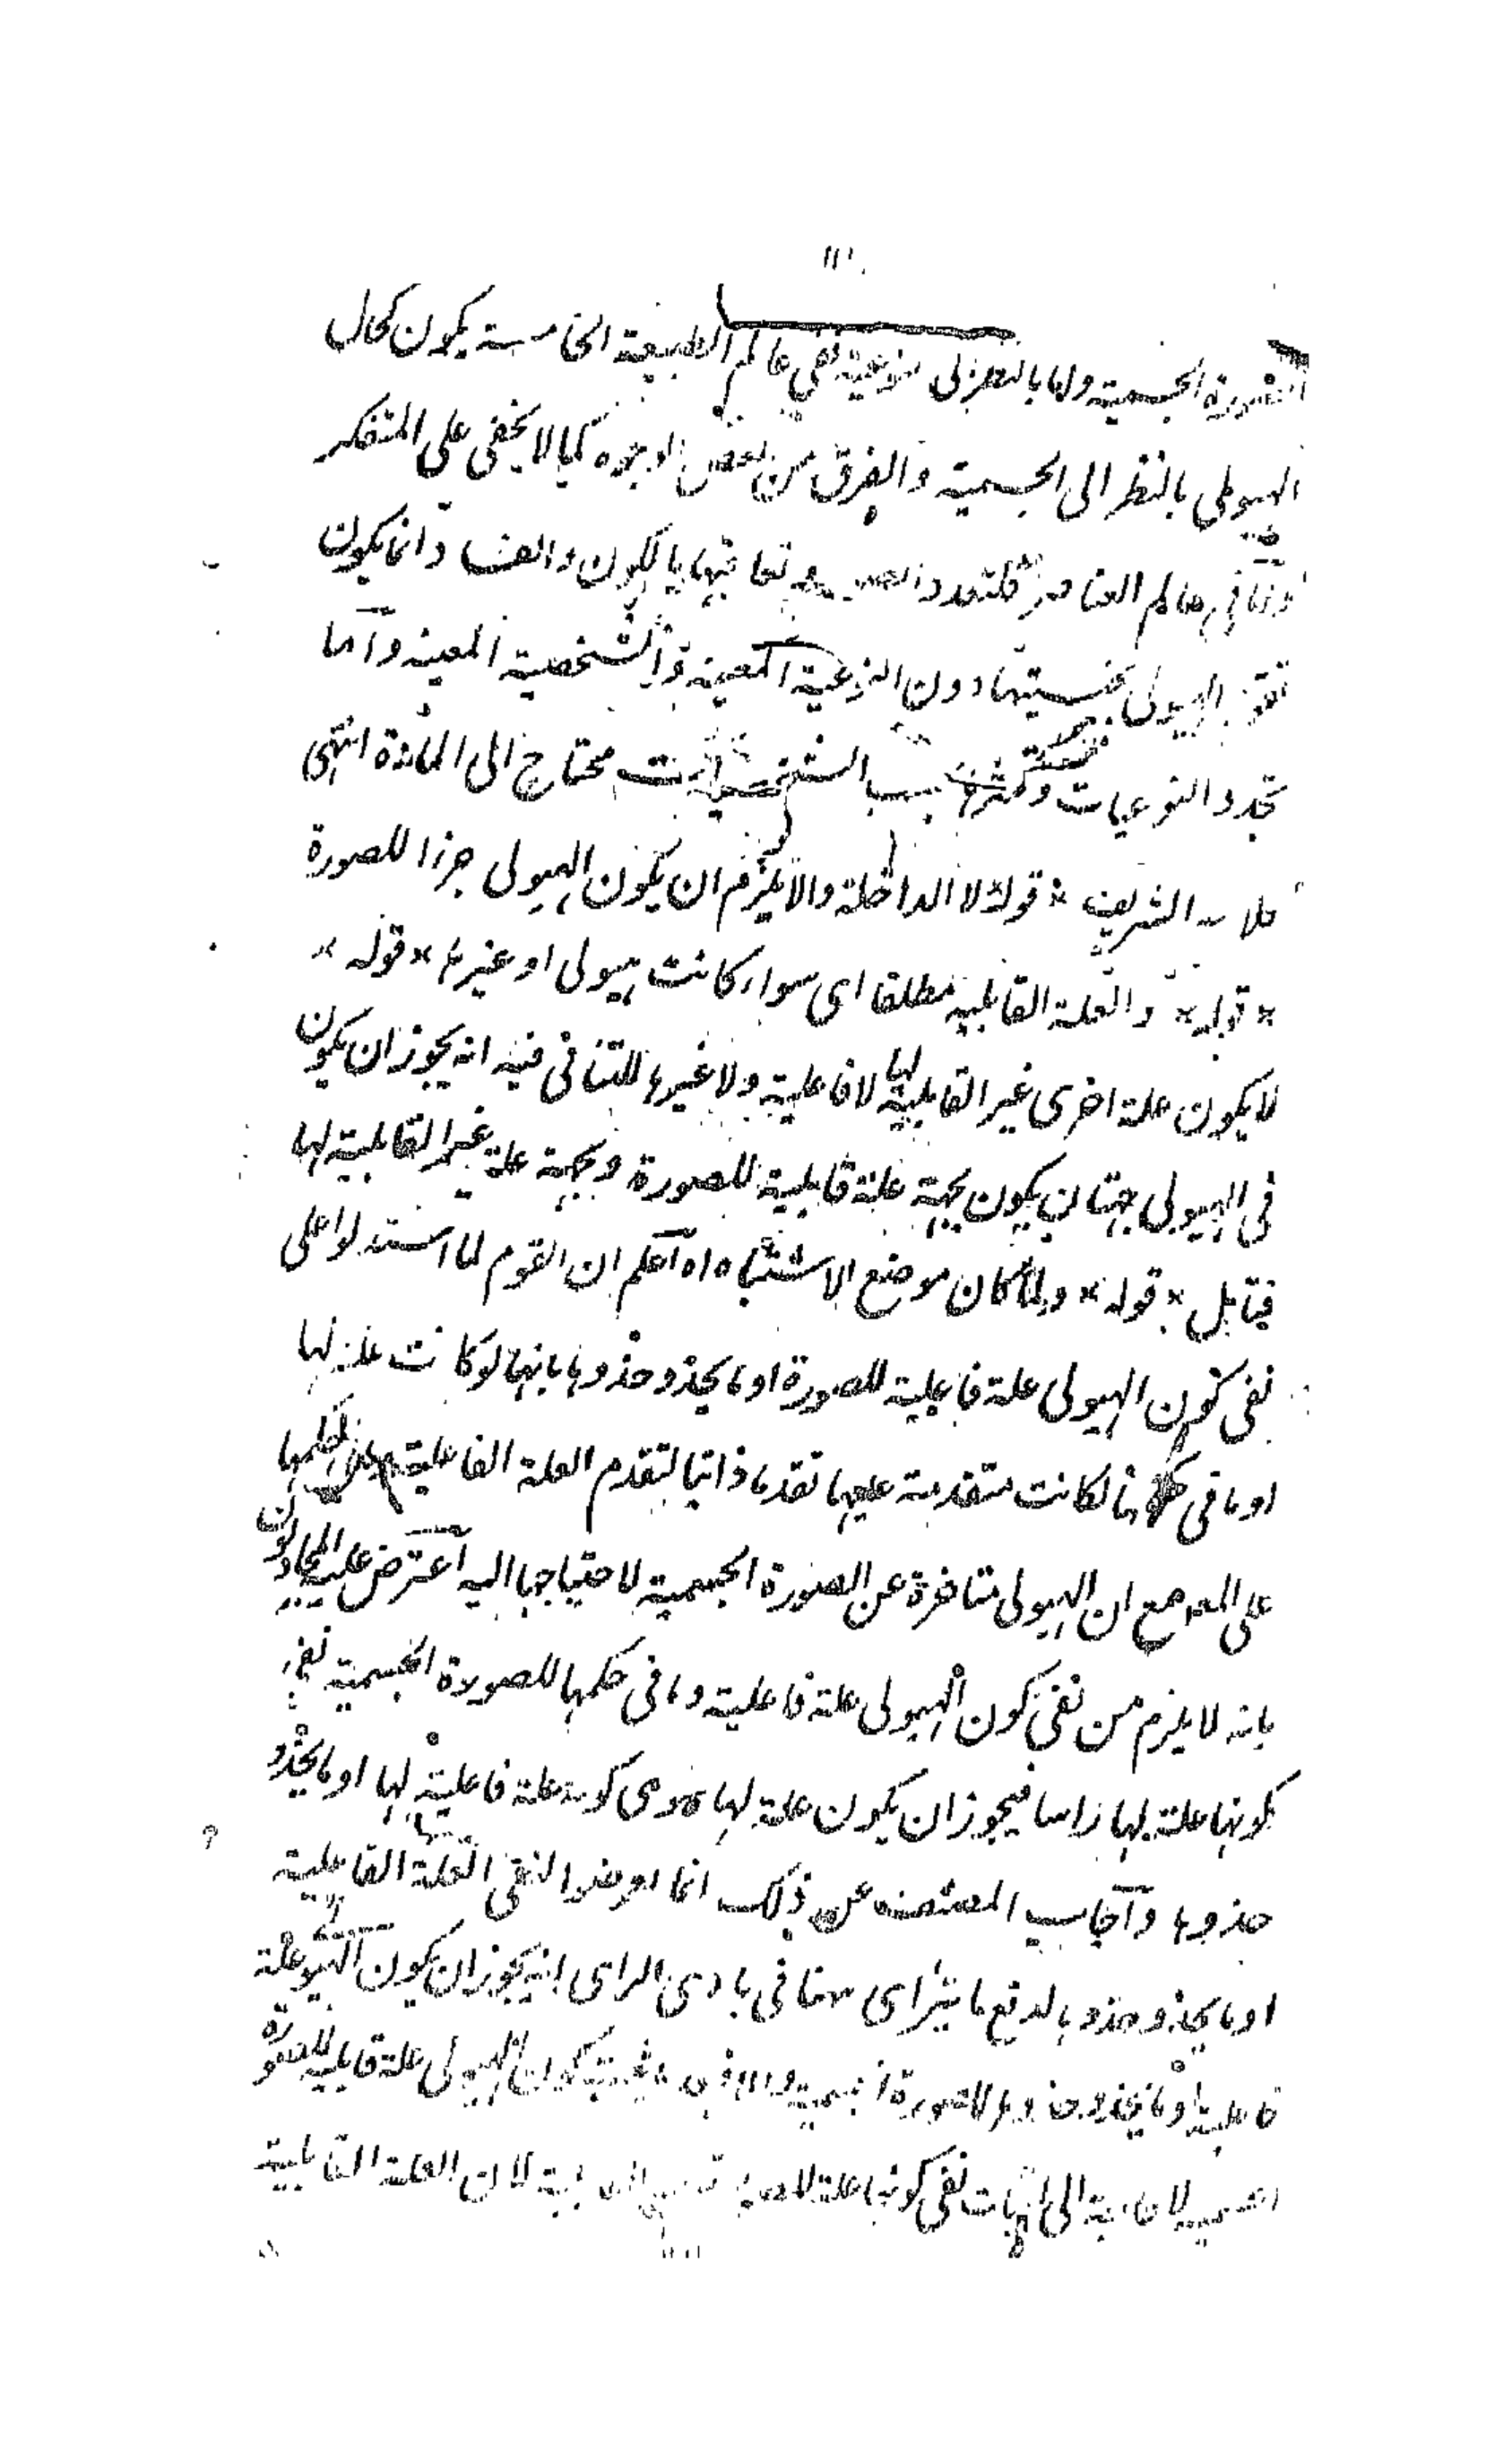 الصورة الجسمية واما بالنظر الى نوعية ففي عالم الطبيعة الخامسة يكون كحال
الهيولى بالنظر الى الجسمية والفرق من بعض الوجوه كما لا يخفى على المتفكر
واما في عالم العناصر فلتعدد وتعاقبها بالكون والفساد انما يكون
تقوم الهيولى بجنسيتها دون النوعية المعينة والشخصية المعينة واما
تجدد النوعيات وتكثرها بسبب محتاج الى المادة انتهى
الشريف * قوله لا الداخلة والا يلزم ان يكون الهيولى جزا للصورة
* قوله * والعلة القابلية مطلقا اى سواء كانت هيولى او غيرها * قوله *
لا يكون علة اخرى غير القابلية لها لا فاعلية ولا غيرها للتنافى فيه انه يجوز ان يكون
فى الهيولى جهتان يكون بجهة علة قابلية للصورة وبجهة علة غير القابلية لها
فتأمل * قوله * ولما كان موضع الاشتباه اه اعلم ان القوم لما استدلوا على
نفى كون الهيولى علة فاعلية للصورة او ما يحذو حذوها بانها لو كانت علة لها
او ما فى حكمها لكانت متقدمة عليها تقدما ذاتيا لتقدم العلة الفاعلية
على المع مع ان الهيولى متاخرة عن الصورة الجسمية لاحتياجها اليه اعترض عليه المجادلون
بانه لا يلزم من نفى كون الهيولى علة فاعلية وما فى حكمها للصورة الجسمية نفى
كونها علة لها راسا فيجوز ان يكون علة لها سوى كونه علة فاعلية لها او ما يحذو
حذوها واجاب المصنف عن ذلك انما العلة الفاعلية
او ما يحذو حذوها لدفع ما يترأى ههنا فى بادى الراى انه يجوز ان يكون الهيولى علة
فاعلية او ما يحذو حذوها للصورة الجسمية كون الهيولى علة قابلية للصورة
الجسمية الى اثبات نفى كونها علة لان العلة القابلية